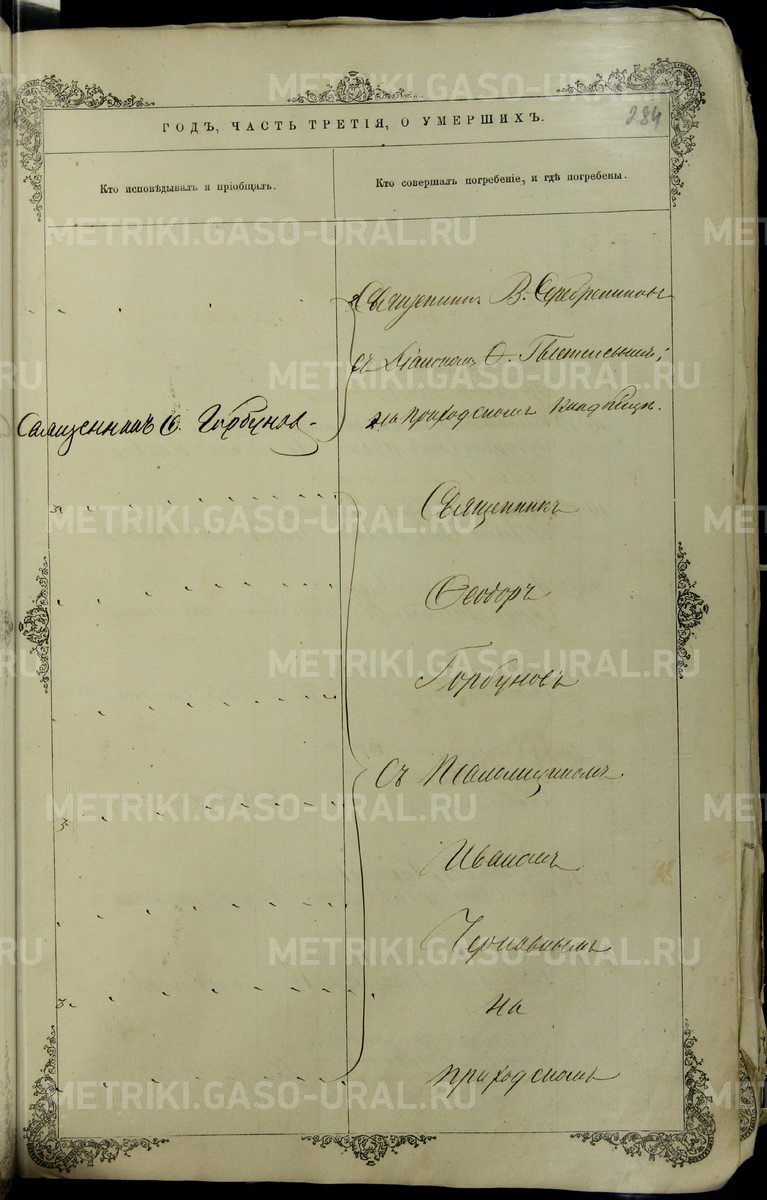 284
ГОДЪ, ЧАСТЬ ТРЕТІЯ, О УМЕРШИХЪ.
Кто исповѣдывалъ и пріобщалъ.
Кто совершалъ погребеніе, и гдѣ погребены.
Священникъ В. Серебренниковъ
съ Діакономъ
на приходскомъ кладбищѣ.
Священникъ Ѳ. Горбуновъ
Священникъ
Ѳеодоръ
Горбуновъ
съ Псаломщикомъ
Иваномъ
на
приходскомъ
METRIKI.GASO-URAL.RU